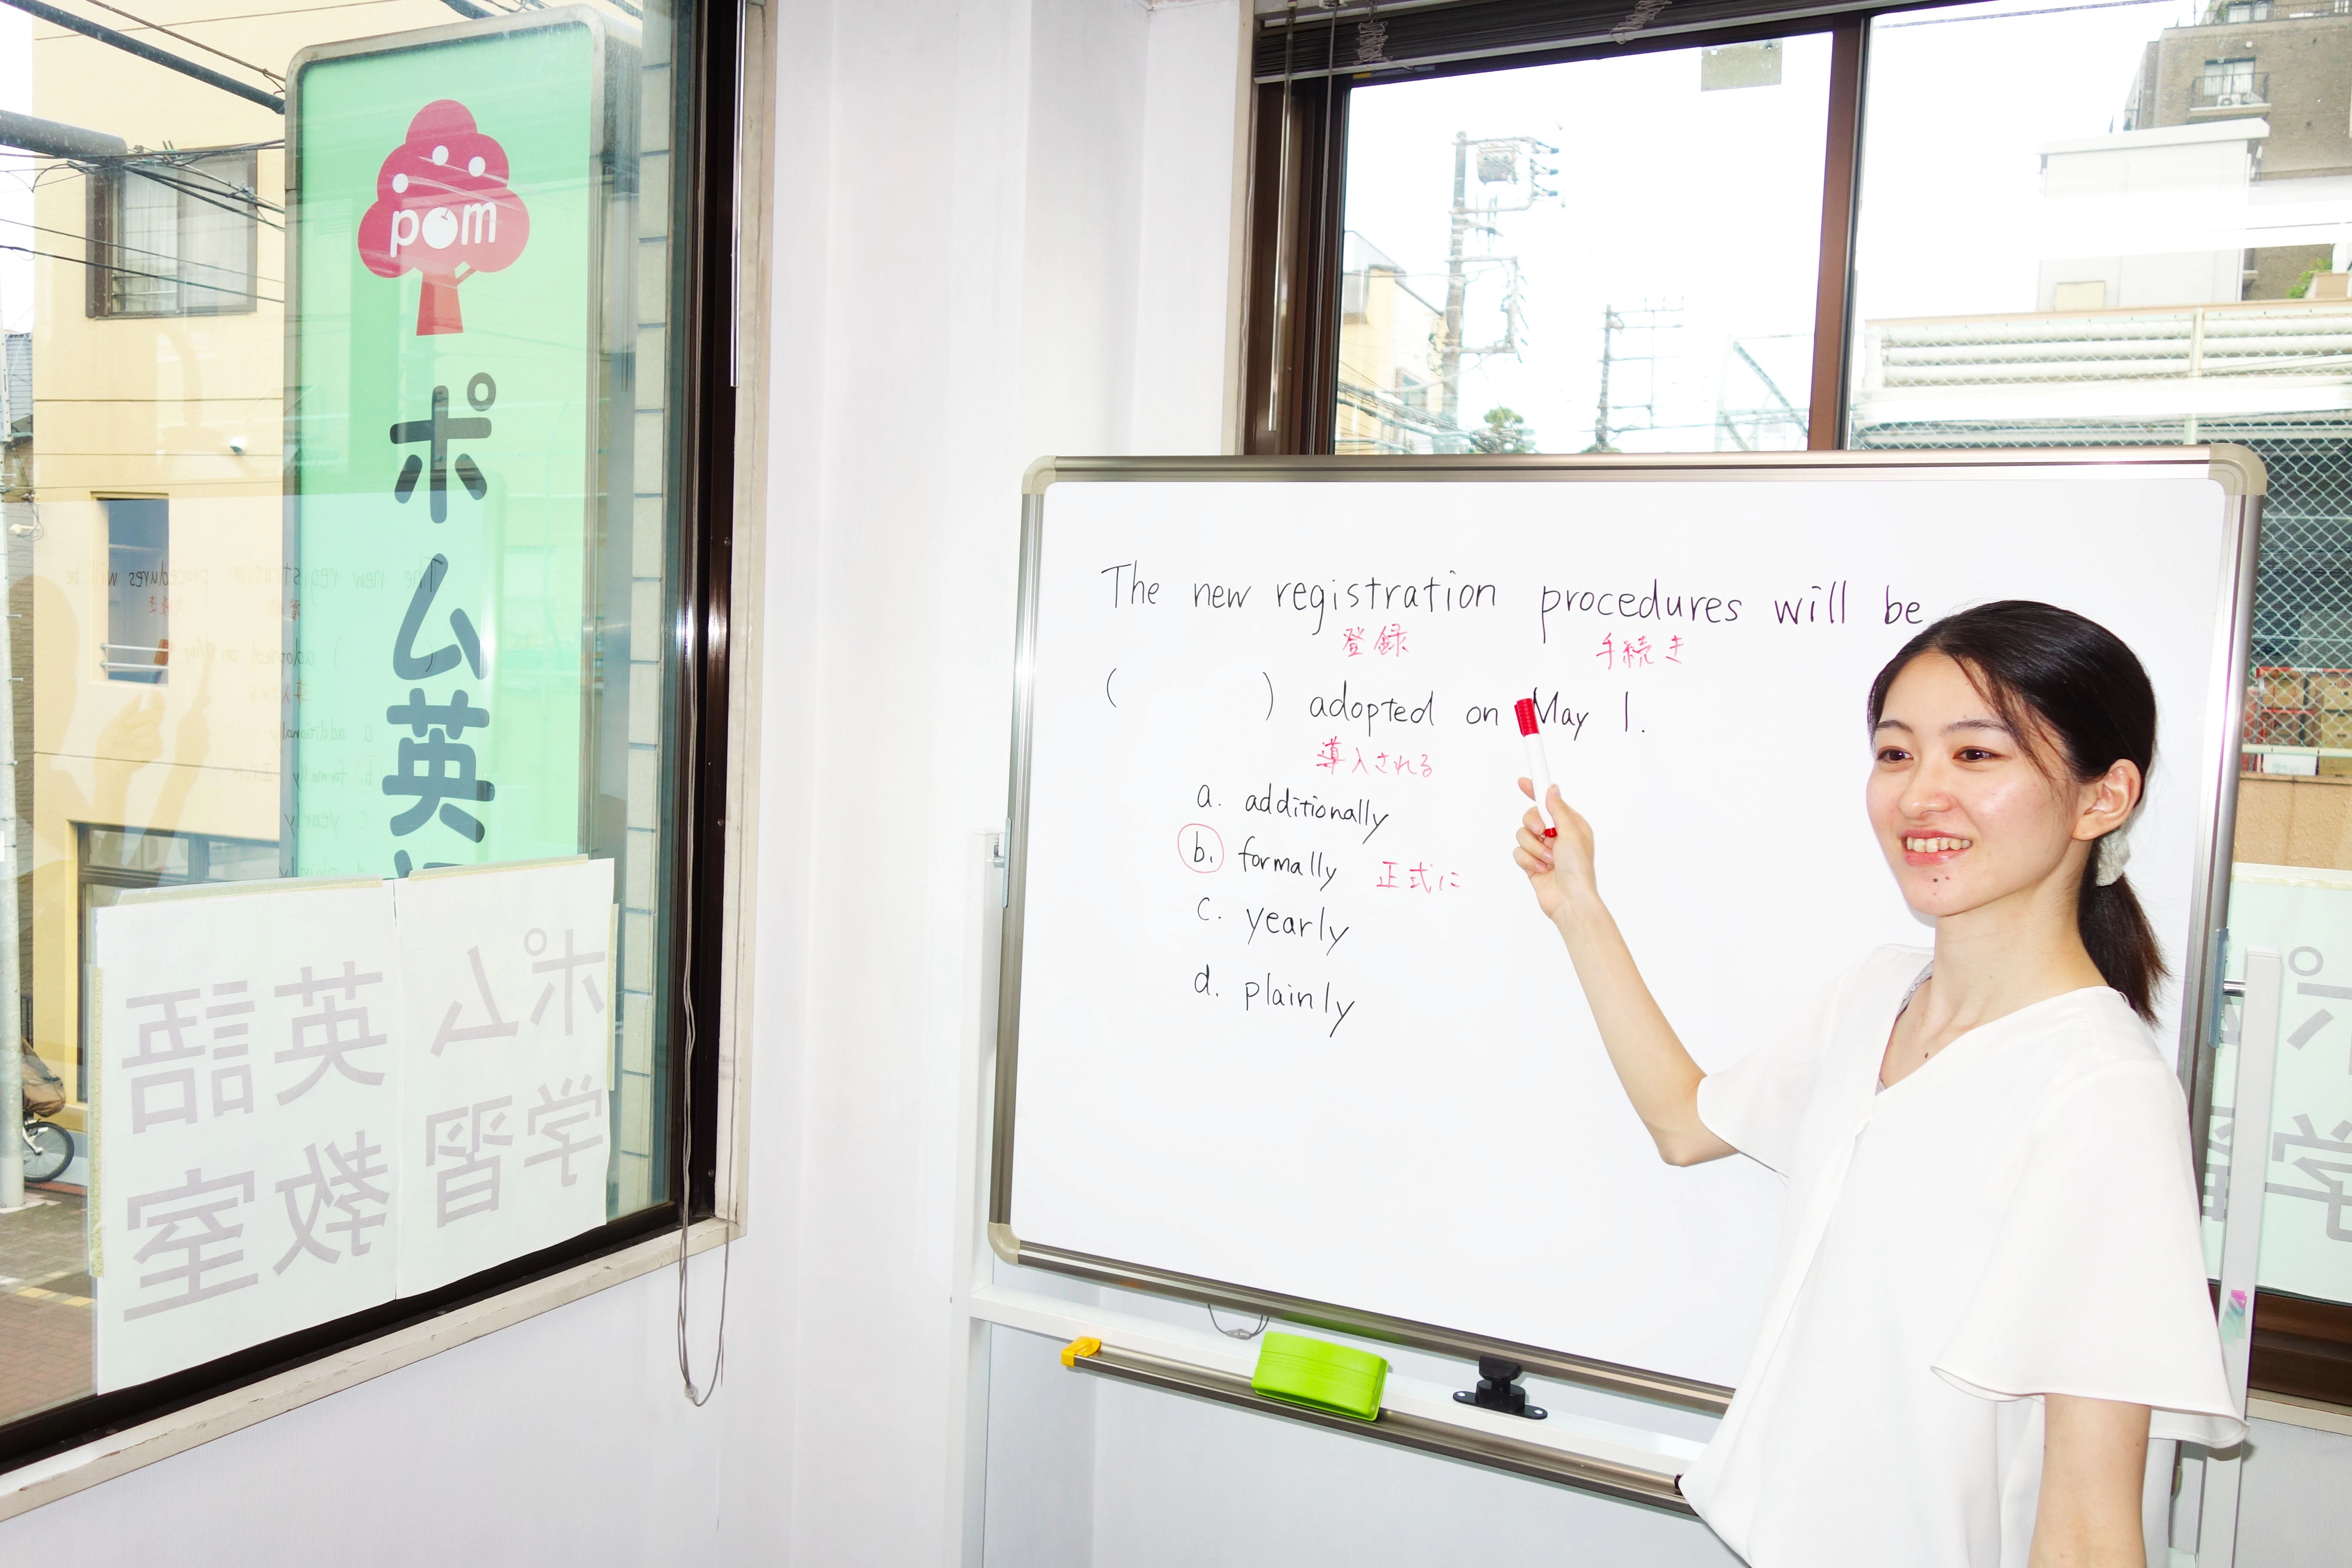 pom
ポム英
ポム
英語
学習
教室
The new registration procedures will be
登録 手続き
( ) adopted on May 1.
導入される
a. additionally
b. formally 正式に
c. yearly
d. plainly